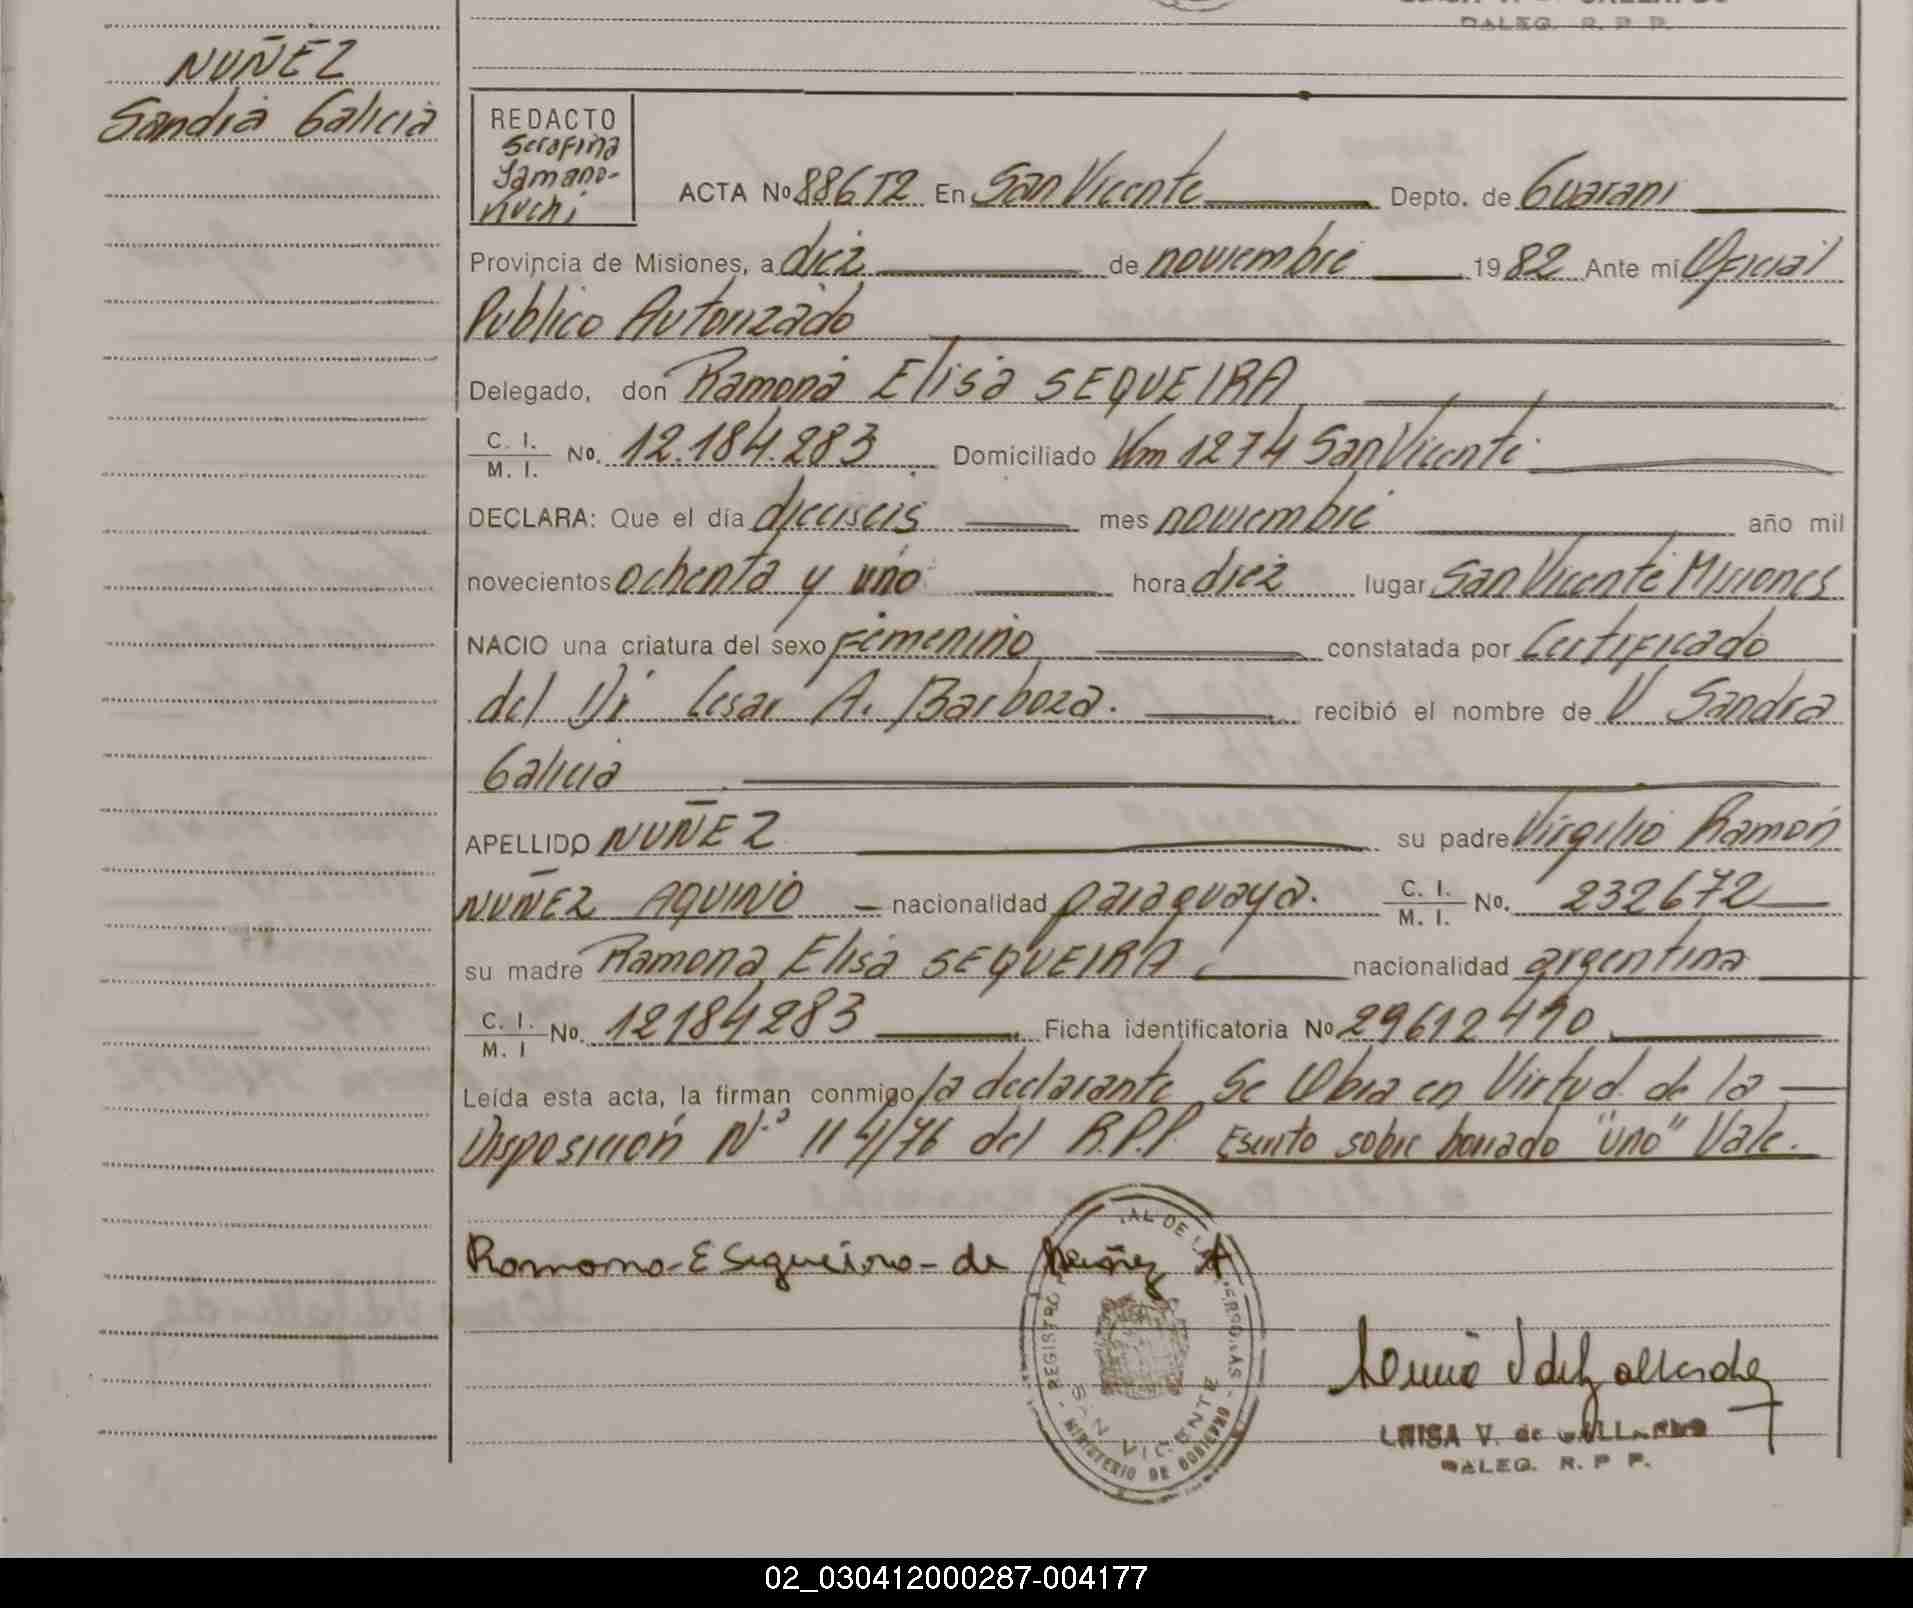 DALEG. R. P. P.
NUÑEZ
Sandra Galicia
REDACTO
Serafina
Yamano-
huchi
ACTA No 886T2 En San Vicente Depto. de Guarani
Provincia de Misiones, a diez de noviembre 1982 Ante mi Oficial
Publico Autorizado
Delegado, don Ramona Elisa SEQUEIRA
C. I.
M. I. No. 12.184.283 Domiciliado Km 1274 San Vicente
DECLARA: Que el día dieciseis mes noviembre año mil
novecientos ochenta y uno hora diez lugar San Vicente Misiones
NACIO una criatura del sexo Femenino constatada por Certificado
del Dr Cesar A. Barboza. recibió el nombre de V Sandra
Galicia
APELLIDO NUÑEZ su padre Virgilio Ramón
NUÑEZ AQUINO nacionalidad paraguaya. C. I. M. I. No. 232672
su madre Ramona Elisa SEQUEIRA nacionalidad argentina
C. I. M. I No. 12184283 Ficha identificatoria No 29612490
Leída esta acta, la firman conmigo la declarante Se Obra en Virtud de la
Disposición N.º 114/76 del R.P.P. Escrito sobre borrado "uno" Vale.
Ramona E Sequeira de Nuñez A
REGISTRO AL DE LA
SAN VICENTE
MINISTERIO DE GOBIERNO
LUISA V. de GALLARDO
DALEG. R. P P.
02_030412000287-004177